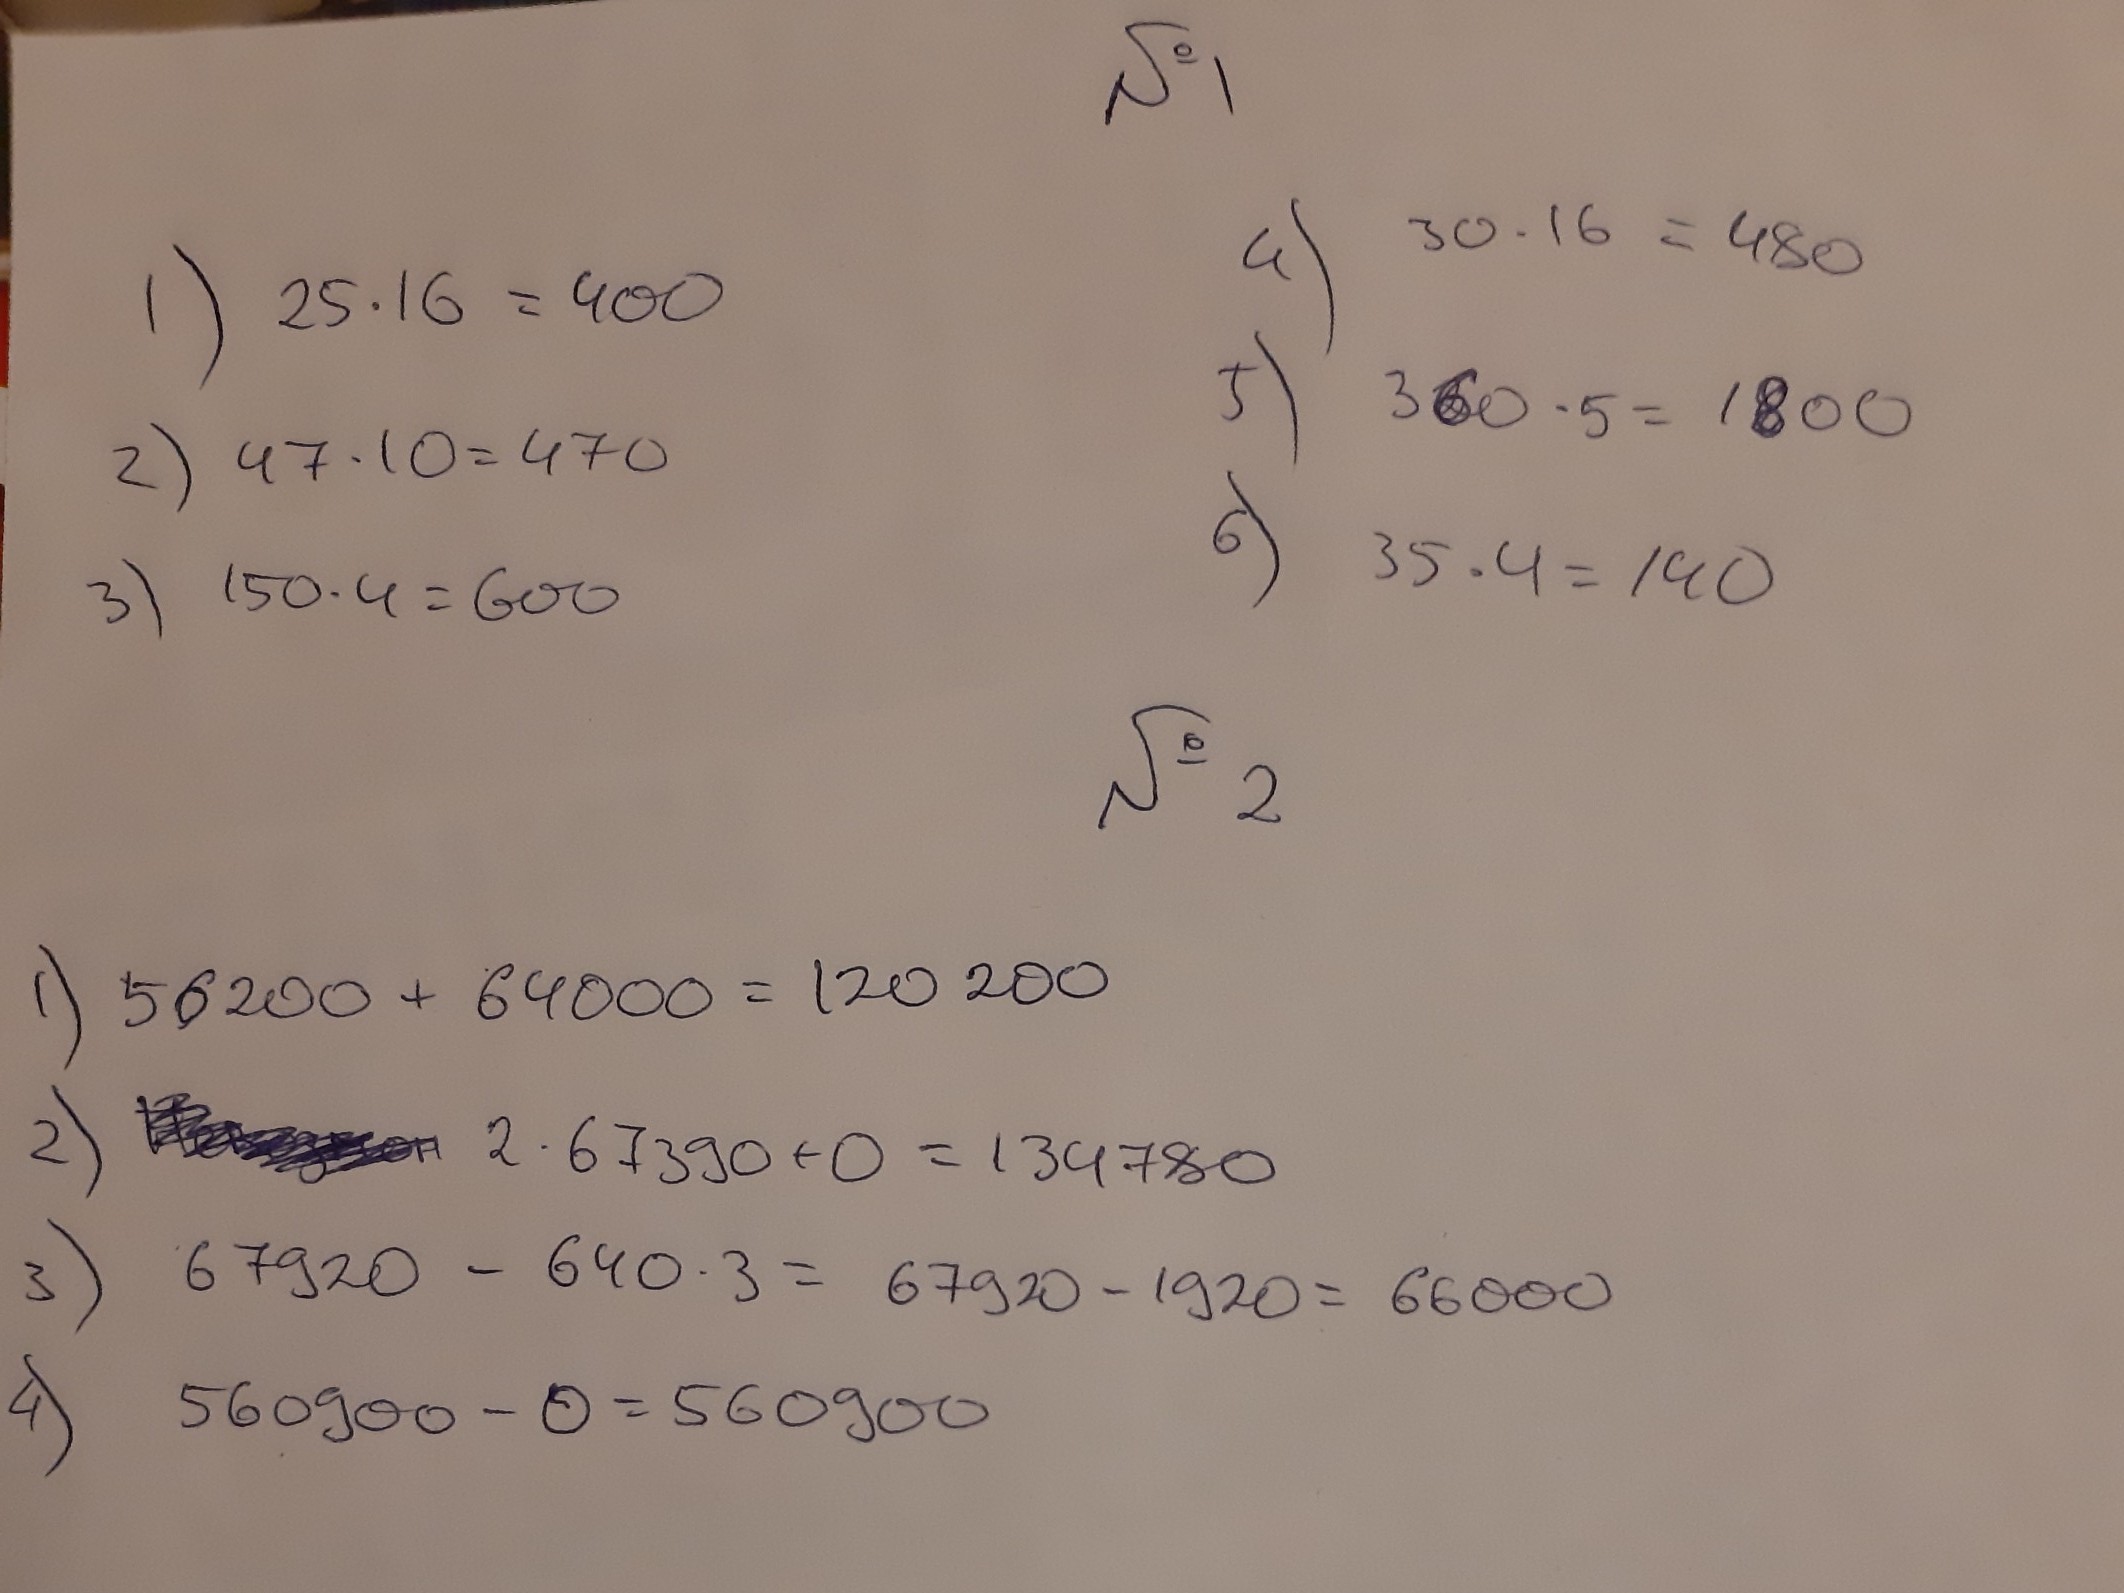 №1
1) 25·16 = 400
2) 47·10=470
3) 150·4=600
4) 30·16 = 480
5) 360·5= 1800
6) 35·4=140
№2
1) 56200 + 64000 = 120 200
2) 2·67390+0 = 134780
3) 67920 - 640·3 = 67920-1920= 66000
4) 560900 - 0 = 560900